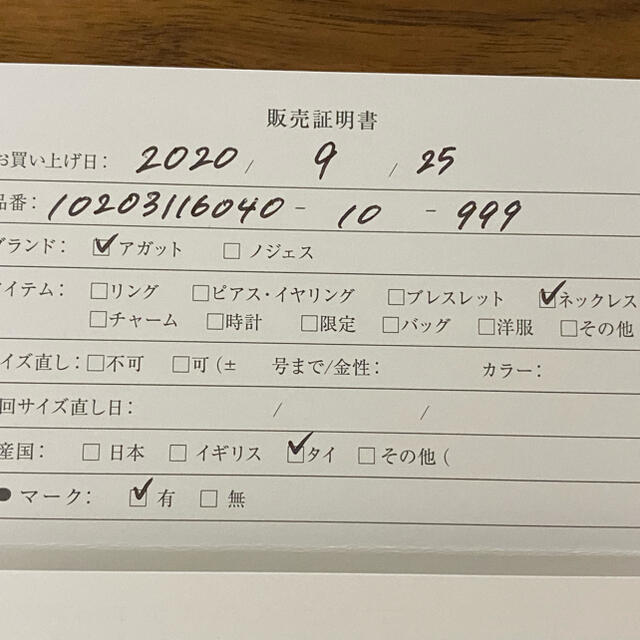 販売証明書
お買い上げ日: 2020 / 9 / 25
品番: 10203116040 - 10 - 999
ブランド: ☑ アガット □ ノジェス
アイテム: □リング □ピアス・イヤリング □ブレスレット ☑ネックレス
□チャーム □時計 □限定 □バッグ □洋服 □その他
イズ直し: □不可 □可 (± 号まで/金性: カラー:
回サイズ直し日: / /
産国: □ 日本 □ イギリス ☑タイ □ その他 (
● マーク: ☑ 有 □ 無